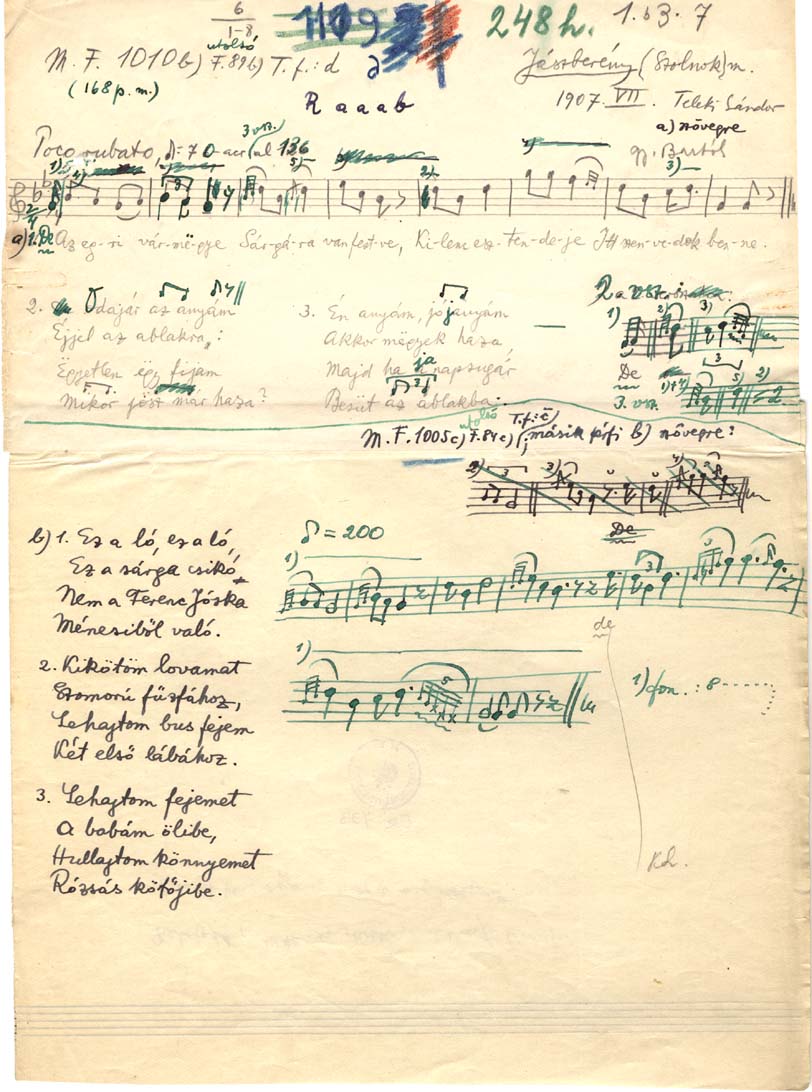 6
1-8
1119
248 h.
1. b 3. 7
M. F. 1010 b) utolsó F. 89 b) T. f.: d
(168 p. m.)
Jászberény (Szolnok) m.
R a a a b
1907. VII. Teleki Sándor
a) szövegre
gy. Bartók
Poco rubato, ♪=70
3 vsz. 136
a) 1. De Az eg-ri vár-më-gye Sár-gá-ra van fest-ve, Ki-lenc esz-ten-de-je Itt szen-ve-dok ben-ne.
2. Odajár az anyám
Éjjel az ablakra:
Ëgyetlen ëgy fijam
Mikor jösz már haza?
3. Én anyám, jó anyám
Akkor mëgyek haza
Majd ha ja napsugár
Besüt az ablakba.
1) 2) 3)
De
3. vsz.
M. F. 1005 c) utolsó F. 84 c) T. f.: c (másik b) szövegre:
De
b) 1. Ez a ló, ez a ló,
Ez a sárga csikó
Nem a Ferenc Jóska
Ménesiből való.
♪ = 200
1)
de
2. Kikötöm lovamat
Szomorú fűzfához,
Lehajtom bus fejem
Két első lábához.
1)
5
1) fon. : 8
3. Lehajtom fejemet
A babám ölibe,
Hullajtom könnyemet
Rózsás kötőjibe.
Kd.